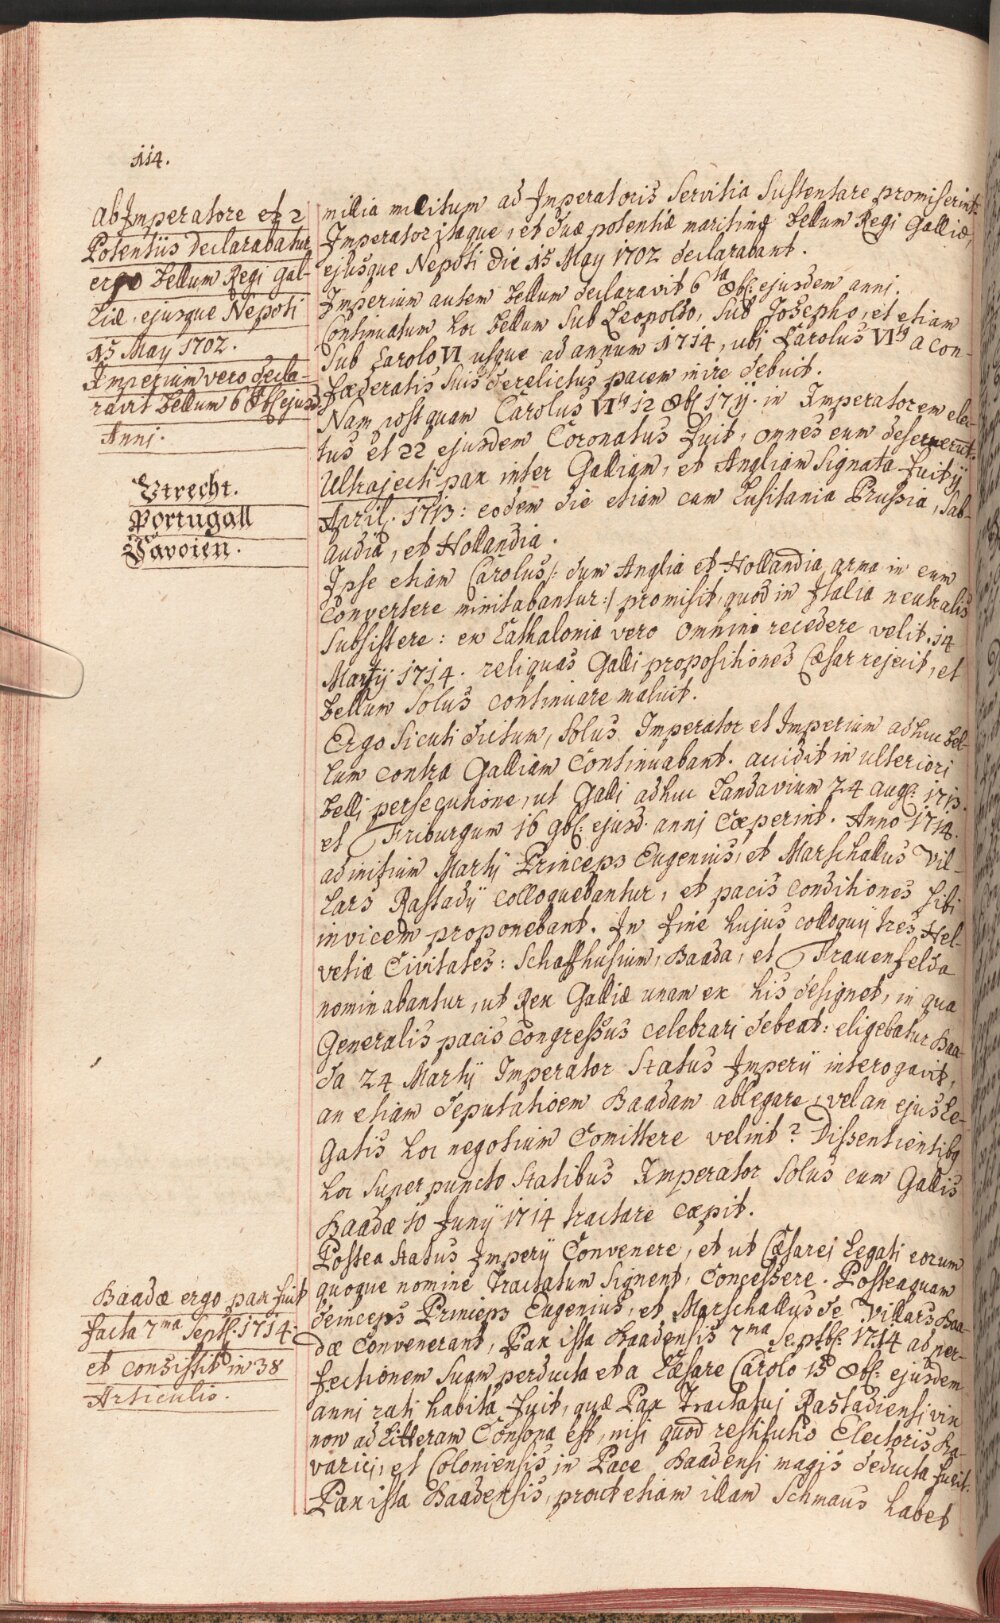 114.
ab Imperatore et 2
Potentiis declarabatur
ergo bellum Regi Gal-
liæ, ejusque Nepoti
15 May 1702.
Imperium vero decla-
ravit bellum 6 8bᶠ ejusd
Anni.
Vtrecht.
Portugall
Savoien.
millia militum ad Imperatoris Servitia Sustentare promiserint
Imperator itaque, et duæ potentiæ maritimæ bellum Regi Galliæ,
ejusque Nepoti die 15 May 1702 declarabant.
Imperium autem bellum declaravit 6ta 8bᶠ: ejusdem anni.
Continuatum hoc bellum Sub Leopoldo, Sub Josepho, et etiam
Sub Carolo VI usque ad annum 1714, ubi Carolus VItg a con-
fæderatis Suis derelictus pacem inire debuit.
Nam postquam Carolus VItg 12 8bᶠ 17ij. in Imperatorem elec-
tus et 22 ejusdem Coronatus fuit, omnes eum deseruerut.
Ultrajecti pax inter Galliam, et Angliam Signata fuit ij
April. 1713: eodem die etiam cum Lusitania Prussia, Sab-
audia, et Hollandia.
Ipse etiam Carolus /: dum Anglia et Hollandia arma in eum
Convertere minitabantur :/ promisit, quod in Italia neutralis
Subsistere: ex Cathalonia vero omnino recedere velit. 14
Martij 1714. reliquas Galli propositiones Cæsar rejecit, et
bellum Solus continuare maluit.
Ergo Sicuti dictum, Solus Imperator et Imperium adhuc bel-
lum contra Galliam Continuabant. accidit in ulteriori
belli persecutione, ut Galli adhuc Landavium 24 augᶠ. 1713.
et Friburgum 16 9bᶠ: ejusd. anni Cæperint. Anno 1714.
ad initium Martij Princeps Eugenius, et Marschallus Vil-
lars Rastadij colloquebantur, et pacis conditiones sibi
invicem proponebant. In fine hujus colloquij tres Hel-
vetiæ Civitates: Schaffhusium, Baada, et Frauenfelda
nominabantur, ut Rex Galliæ unam ex his designet, in qua
Generalis pacis Congressus celebrari debeat: eligebatur Baa-
da 24 Martij Imperator Status Imperij interogavit,
an etiam deputatioem Baadam ablegare, vel an ejus Le-
gatis hoc negotium Comittere velint? Dissentientibg
hoc Super puncto Statibus Imperator Solus cum Gallis
Baadæ 10 Junij 1714 tractare cæpit.
Postea Status Imperij Convenere, et ut Cæsarei Legati eorum
quoque nomine Tractatum Signent, Concessere. Posteaquam
deinceps Princeps Eugenius, et Marschallus de Villars Baa-
dæ Convenerant, Pax ista Baadensis 7ma Septbᶠ. 1714 ad per-
fectionem Suam perducta et a Cæsare Carolo 15 8bᶠ. ejusdem
anni rati habita fuit, quæ Pax Tractatui Rastadiensi vix
non ad Litteram Consona est, nisi quod restitutio Electoris Ba-
varici, et Coloniensis in Pace Baadensi magis deducta fuerit.
Pax ista Baadensis, prout etiam illam Schmaus habet
Baadæ ergo pax fuit
facta 7ma Septbᶠ. 1714.
et consistit in 38
Articulis.